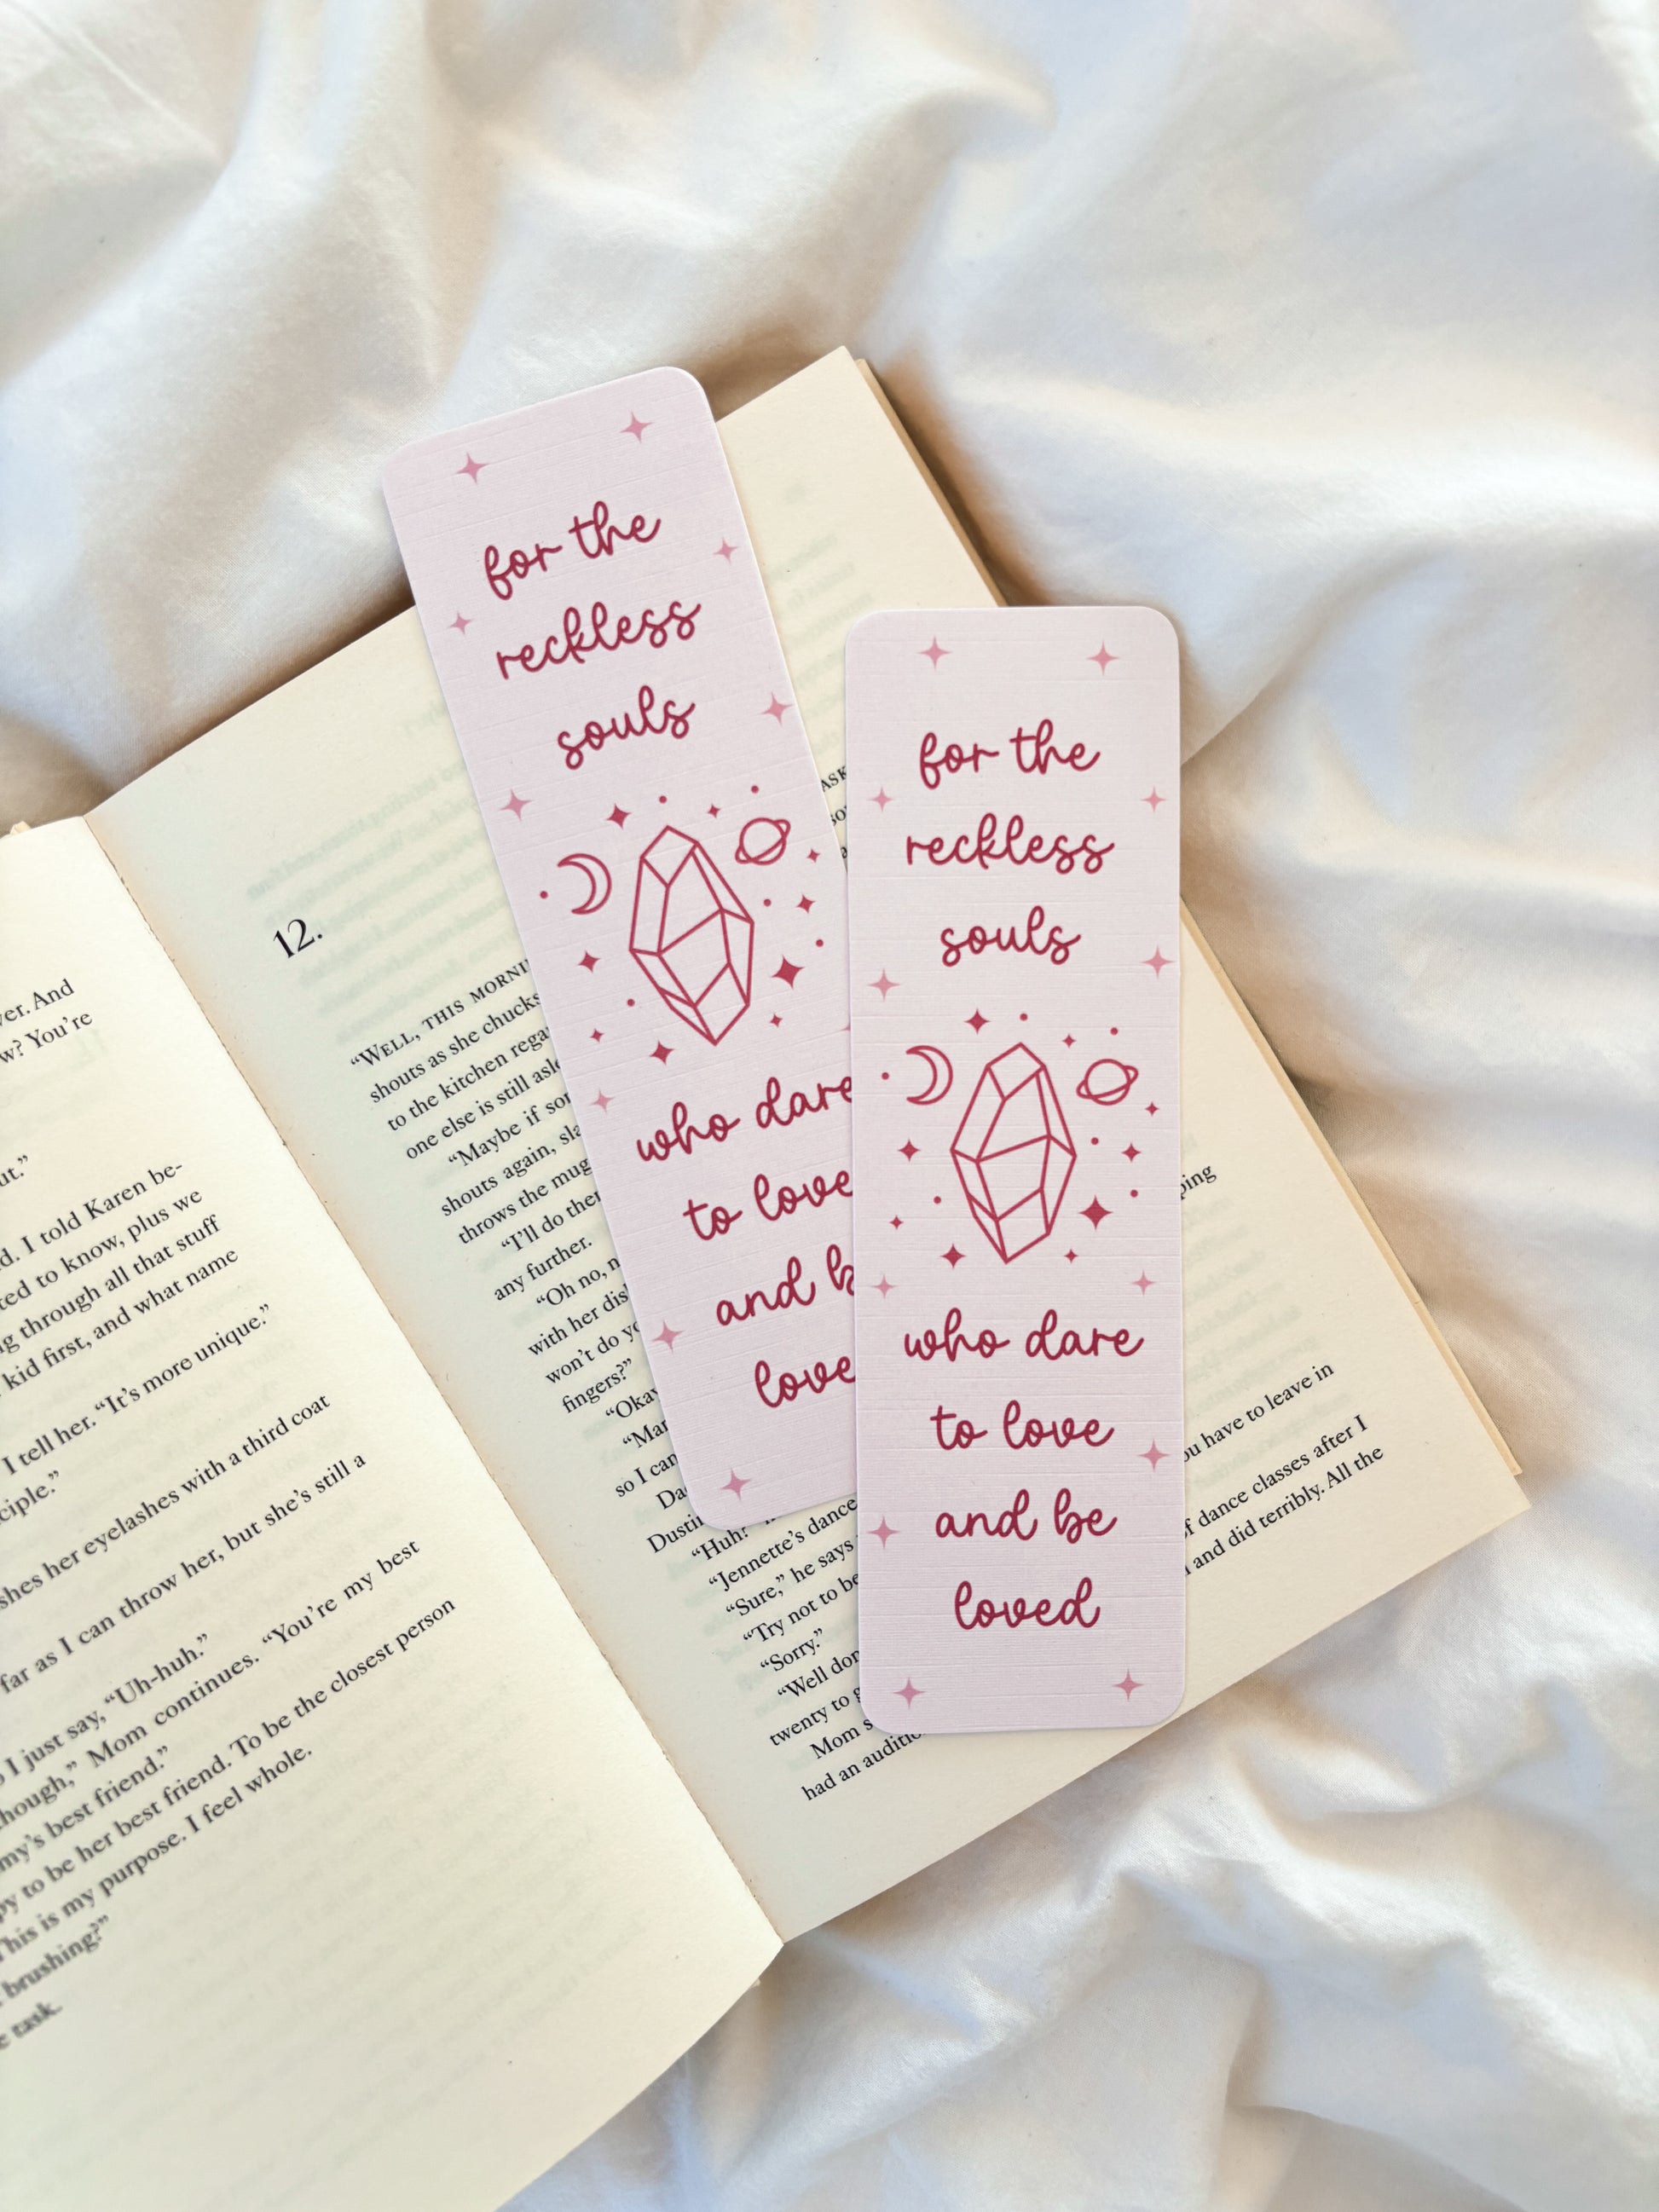 for the
reckless
souls
who dare
to love
and b
love
for the
reckless
souls
who dare
to love
and be
loved
ver. And
w? You're
ut."
d. I told Karen be-
ted to know, plus we
ng through all that stuff
kid first, and what name
I tell her. "It's more unique."
ciple."
shes her eyelashes with a third coat
far as I can throw her, but she's still a
I just say, "Uh-huh."
hough," Mom continues. "You're my best
my's best friend."
py to be her best friend. To be the closest person
This is my purpose. I feel whole.
brushing?"
e task.
12.
"WELL, THIS MORNI
shouts as she chucks
to the kitchen rega
one else is still asle
"Maybe if so
shouts again, sla
throws the mug
"I'll do ther
any further.
"Oh no, n
with her dis
won't do yo
fingers?"
"Okay
"Mar
so I can
Da
Dustin
"Huh?"
"Jennette's dance
"Sure," he says
"Try not to be
"Sorry."
"Well don
twenty to g
Mom s
had an auditio
ASK
so
ping
ou have to leave in
f dance classes after I
and did terribly. All the